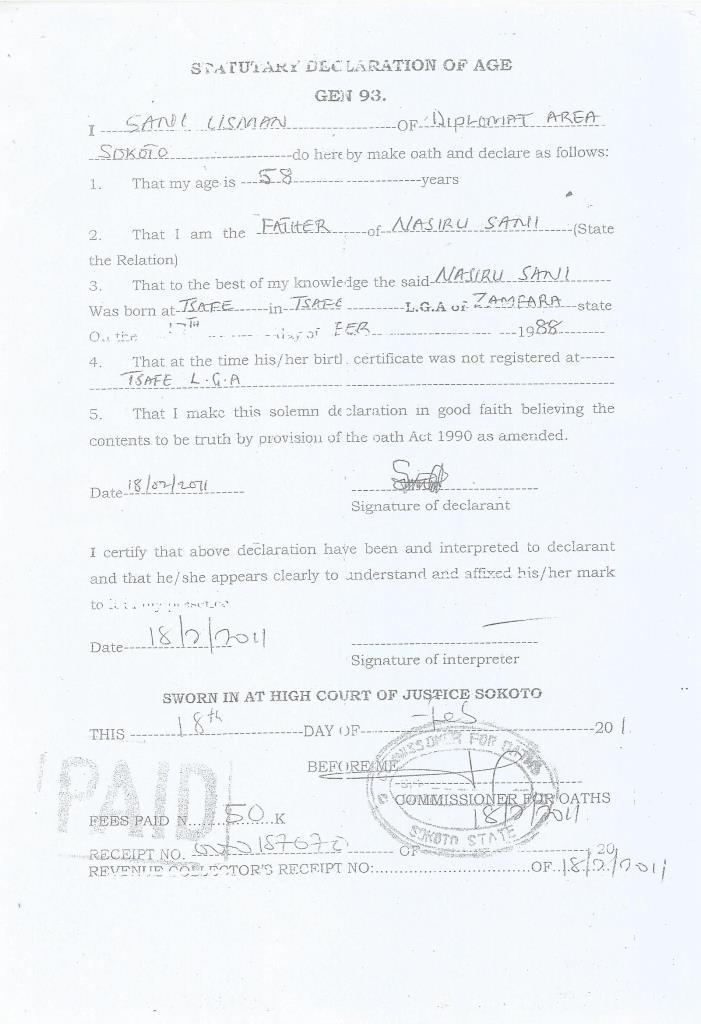 STATUTARY DECLARATION OF AGE
GEN 93.
I SANI USMAN OF DIPLOMAT AREA
SOKOTO do hereby make oath and declare as follows:
1. That my age is 58 years
2. That I am the FATHER of NASIRU SANI (State
the Relation)
3. That to the best of my knowledge the said NASIRU SANI
Was born at TSAFE in TSAFE L.G.A of ZAMFARA state
On the 17TH day of FEB 1988
4. That at the time his/her birth certificate was not registered at
TSAFE L.G.A
5. That I make this solemn declaration in good faith believing the
contents to be truth by provision of the oath Act 1990 as amended.
Date 18/02/2011
Signature of declarant
I certify that above declaration have been and interpreted to declarant
and that he/she appears clearly to understand and affixed his/her mark
to in my presence
Date 18/2/2011
Signature of interpreter
SWORN IN AT HIGH COURT OF JUSTICE SOKOTO
THIS 18th DAY OF Feb 201
BEFORE ME
COMMISSIONER FOR OATHS
COMMISSIONER FOR OATHS
18/2/2011
SOKOTO STATE
PAID
FEES PAID N 50 K
RECEIPT NO. OF 20
REVENUE COLLECTOR'S RECEIPT NO: OF 18/2/2011